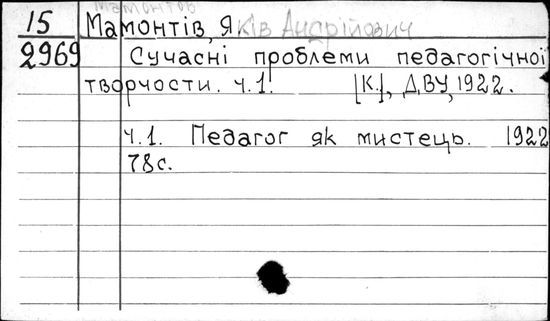 Мамонтов
15 Мамонтів, Яків Андрійович
2969 Сучасні проблеми педагогічної
творчости. ч.1. [К.], ДВУ, 1922.
ч.1. Педагог як мистець. 1922
78с.